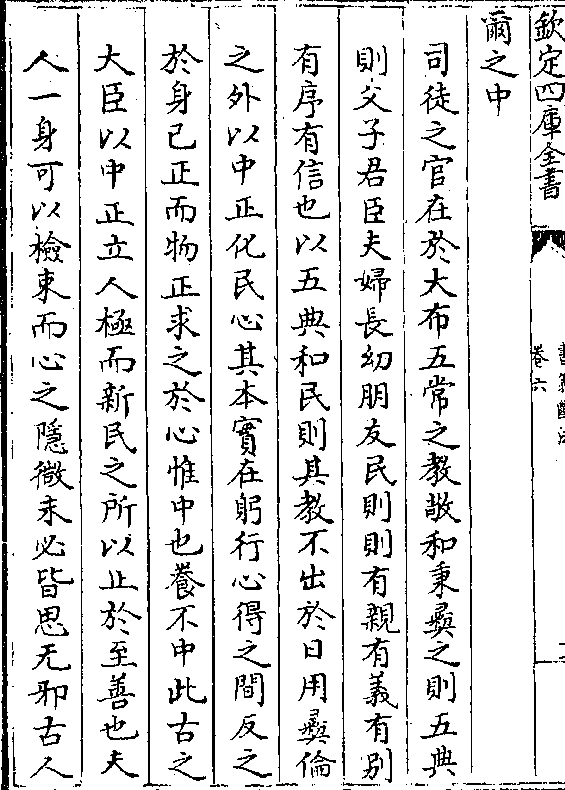 欽定四庫全書
卷六
爾之中
司徒之官在於大布五常之教敬和秉彝之則五典
則父子君臣夫婦長幼朋友民則則有親有義有別
有序有信也以五典和民則其教不出於日用彝倫
之外以中正化民心其本實在躬行心得之間反之
於身已正而物正求之於心惟中也養不中此古之
大臣以中正立人極而新民之所以止於至善也夫
人一身可以檢束而心之隱微未必皆思无邪古人